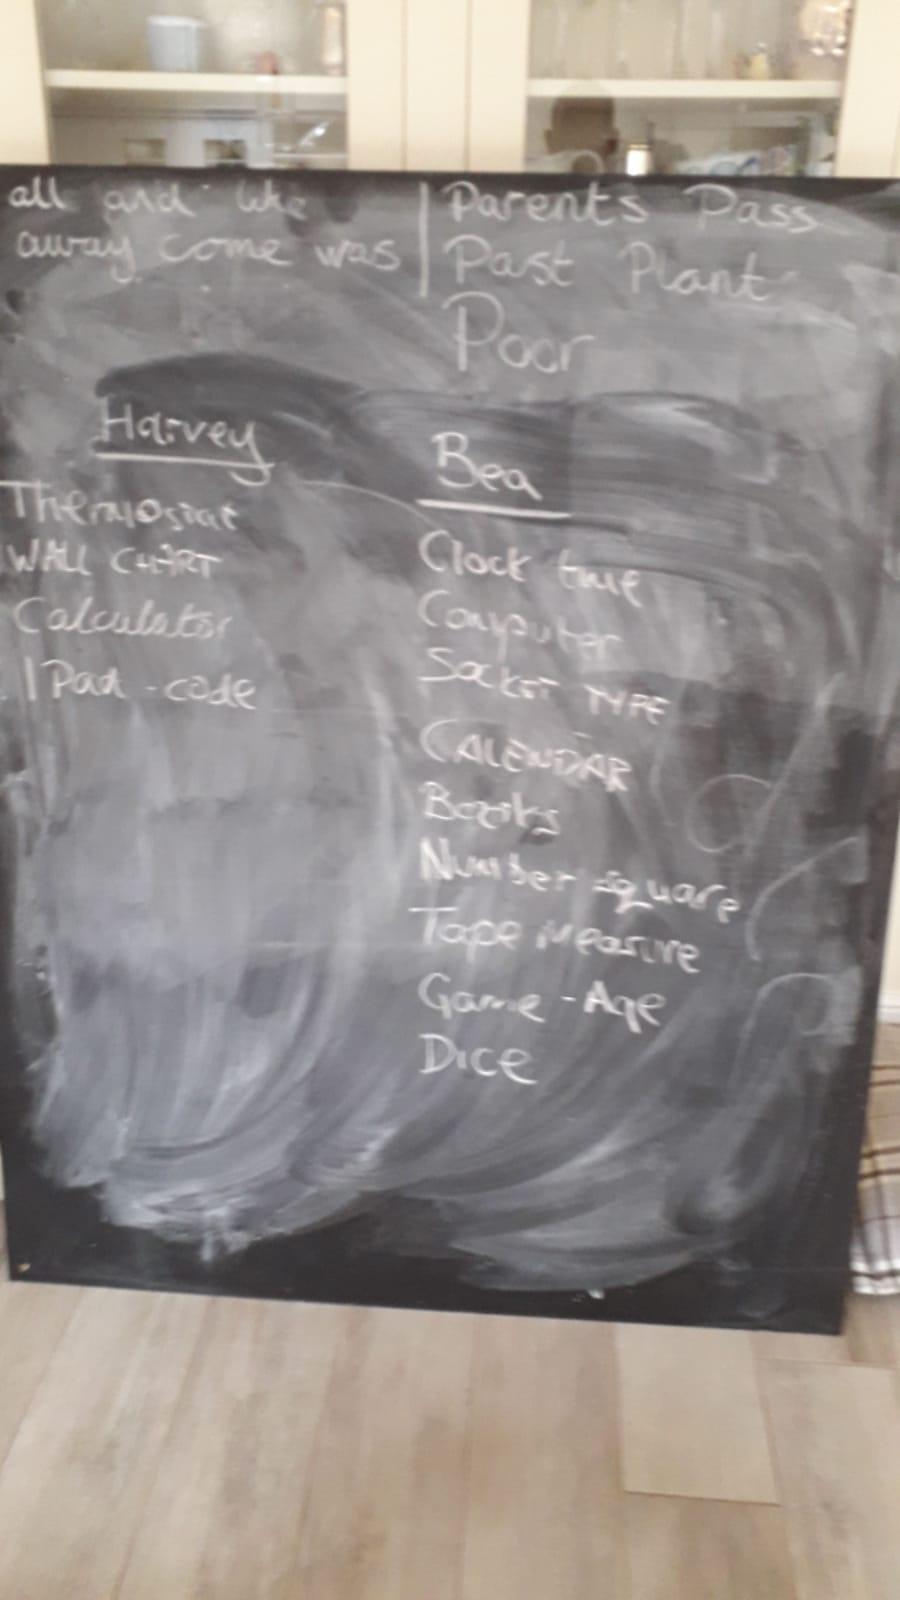 all and like
away come was
Parents Pass
Past Plant
Poor
Harvey
Thermostat
WALL CHART
Calculator
IPad - code
Bea
Clock time
Computer
Socket TYPE
CALENDAR
Books
Number square
Tape Measure
Game - Age
Dice